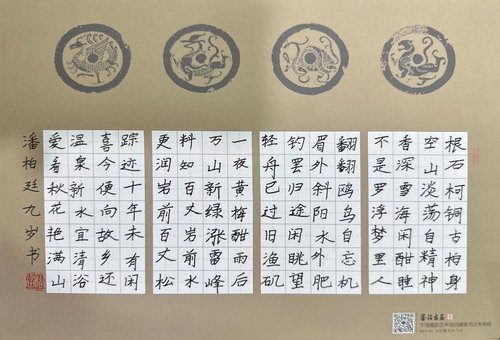 根石柯铜古柏身
空山淡荡自精神
香深雪海闲酣睡
不是罗浮梦里人
翻翻鸥鸟自忘机
眉外斜阳水外肥
钓罢归途闲眺望
轻舟已过旧渔矶
一夜黄梅酣雨后
万山新绿涨雷峰
料知百丈岩前水
更润岩前百丈松
踪迹十年未有闲
喜今便向故乡还
温泉新水宜清浴
爱看秋花艳满山
潘柏廷九岁书